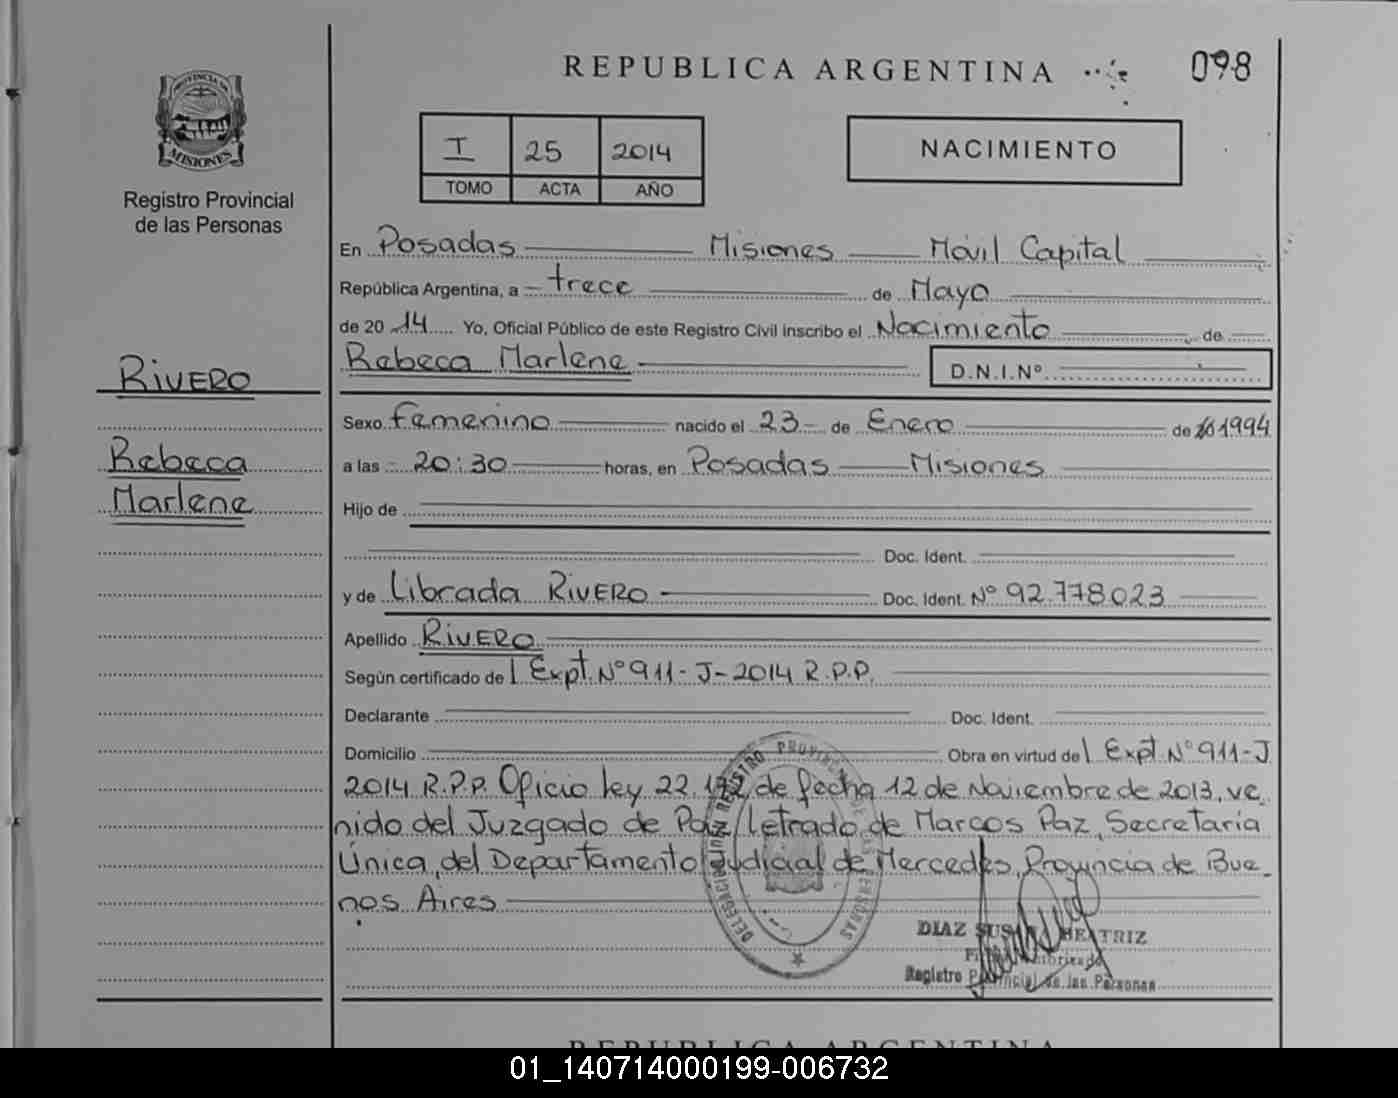 REPUBLICA ARGENTINA
098
PROVINCIA DE
MISIONES
Registro Provincial
de las Personas
I 25 2014
TOMO ACTA AÑO
NACIMIENTO
En Posadas Misiones Móvil Capital
República Argentina, a trece de Mayo
de 2014 Yo, Oficial Público de este Registro Civil inscribo el Nacimiento de
Rebeca Marlene D.N.I.Nº
RIVERO
Rebeca
Marlene
Sexo femenino nacido el 23 de Enero de 1994
a las 20:30 horas, en Posadas Misiones
Hijo de
Doc. Ident.
y de Librada RIVERO Doc. Ident. Nº 92.778023
Apellido RIVERO
Según certificado de l Expt. Nº 911-J-2014 R.P.P.
Declarante Doc. Ident.
Domicilio Obra en virtud de l Expt. Nº 911-J
2014 R.P.P. Oficio ley 22.172 de fecha 12 de Noviembre de 2013, ve
nido del Juzgado de Paz Letrado de Marcos Paz, Secretaria
Única, del Departamento Judicial de Mercedes, Provincia de Bue
nos Aires
REGISTRO PROVINCIAL DE LAS PERSONAS
DIAZ SUSANA BEATRIZ
Registro Provincial de las Personas
REPUBLICA ARGENTINA
01_140714000199-006732